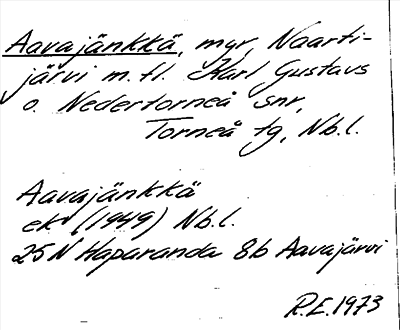 Aavajänkkä, myr, Naarti-
järvi m.fl. Karl Gustavs
o. Nedertorneå snr,
Torneå tg, Nb.l.
Aavajänkkä
ek (1949) Nb.l.
25N Haparanda 8b Aavajärvi
R.E. 1973